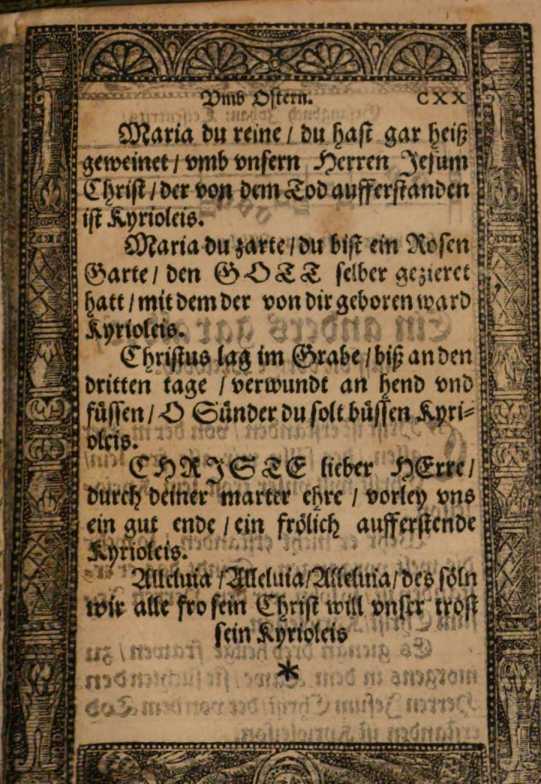 Vmb Ostern. CXX
Maria du reine / du hast gar heiß
geweinet / vmb vnsern Herren Jesum
Christ / der von dem Tod aufferstanden
ist Kyrioleis.
Maria du zarte / du bist ein Rosen
Garte / den GOTT selber gezieret
hatt / mit dem der von dir geboren ward
Kyrioleis.
Christus lag im Grabe / biß an den
dritten tage / verwundt an hend vnd
füssen / O Sünder du solt büssen Kyri⸗
oleis.
CHRISTE lieber HErre /
durch deiner marter ehre / vorley vns
ein gut ende / ein frölich aufferstende
Kyrioleis.
Alleluia / Alleluia / Alleluia / des söln
wir alle fro sein Christ will vnser trost
sein Kyrioleis
*